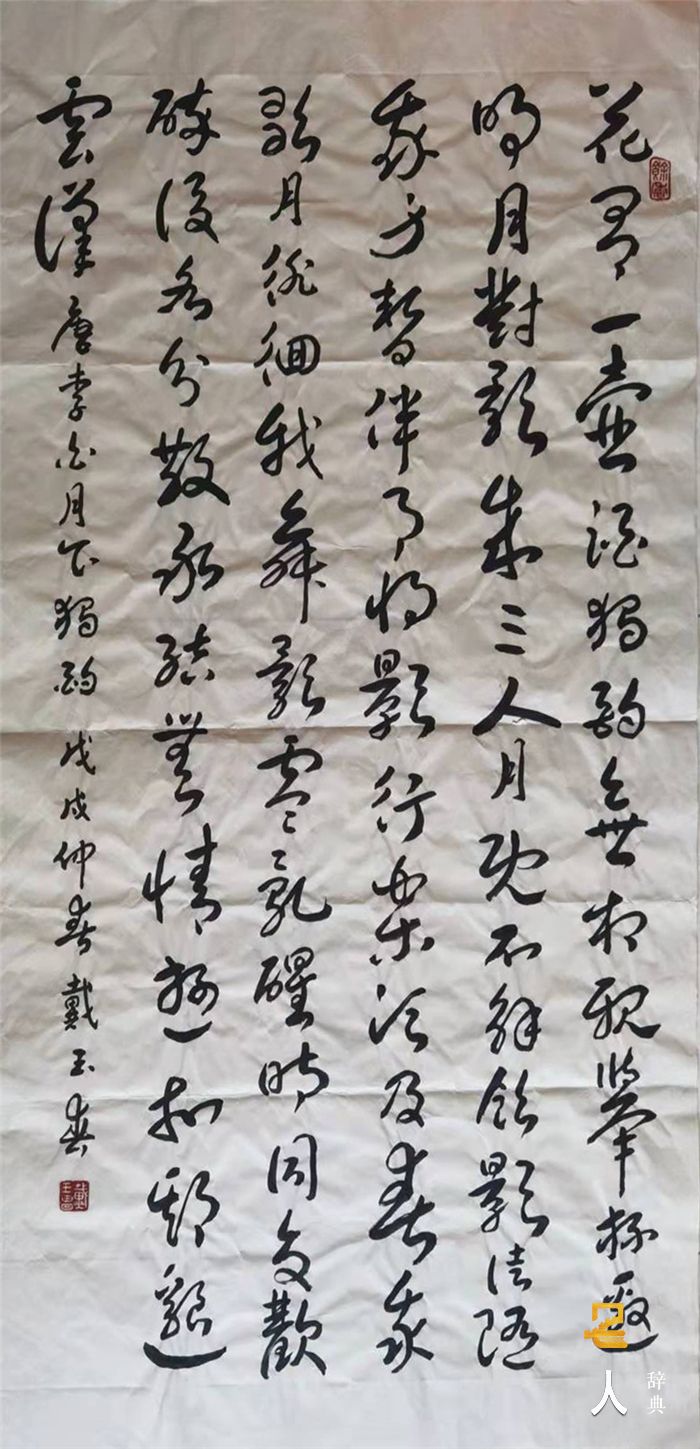 花間一壺酒獨酌無相親舉杯邀
明月對影成三人月既不解飲影徒隨
我身暫伴月將影行樂須及春我
歌月徘徊我舞影零亂醒時同交歡
醉後各分散永結無情遊相期邈
雲漢 唐李白月下獨酌 戊戌仲春戴玉
人
辞典